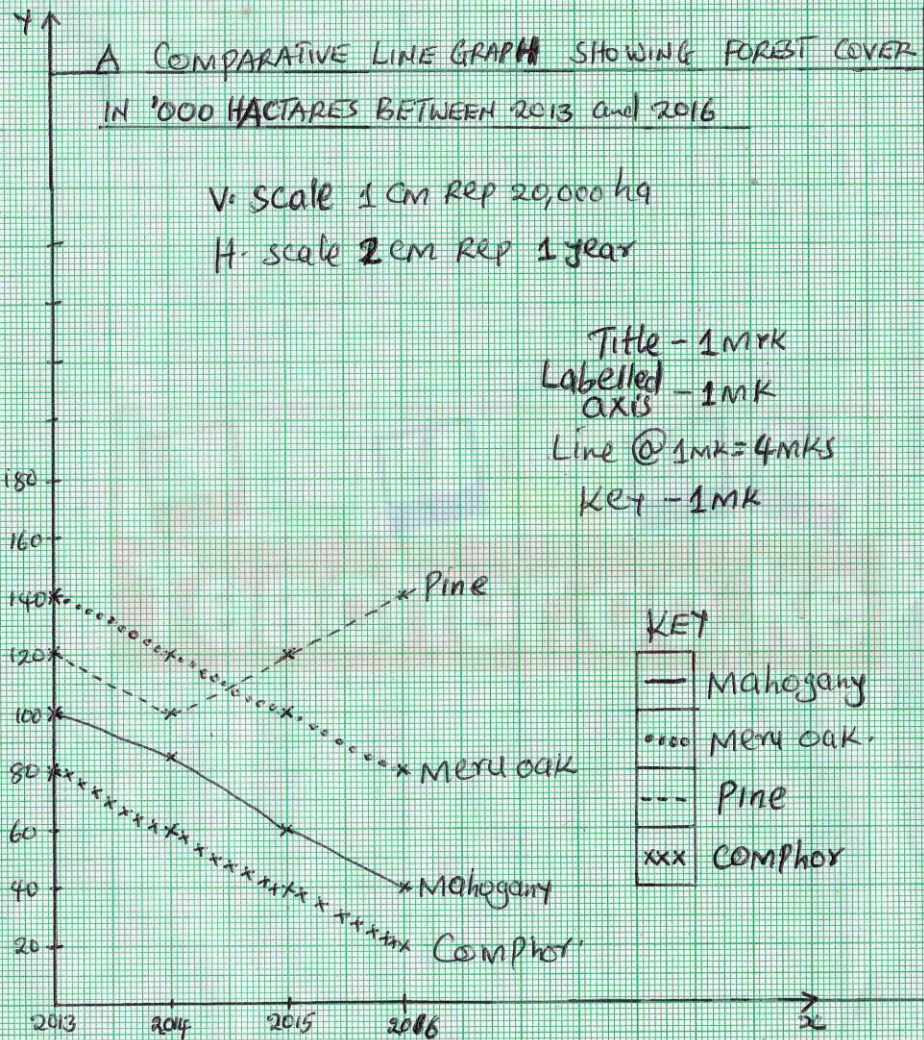 Y
A COMPARATIVE LINE GRAPH SHOWING FOREST COVER
IN '000 HACTARES BETWEEN 2013 and 2016
V. scale 1 cm Rep 20,000 ha
H. scale 2 cm Rep 1 year
Title - 1 Mrk
Labelled axis - 1 MK
Line @ 1MK = 4MKS
Key - 1MK
180
160
140
120
100
80
60
40
20
Pine
Meru oak
Mahogany
Comphor
KEY
Mahogany
Meru oak.
Pine
xxx Comphor
2013 2014 2015 2016 x